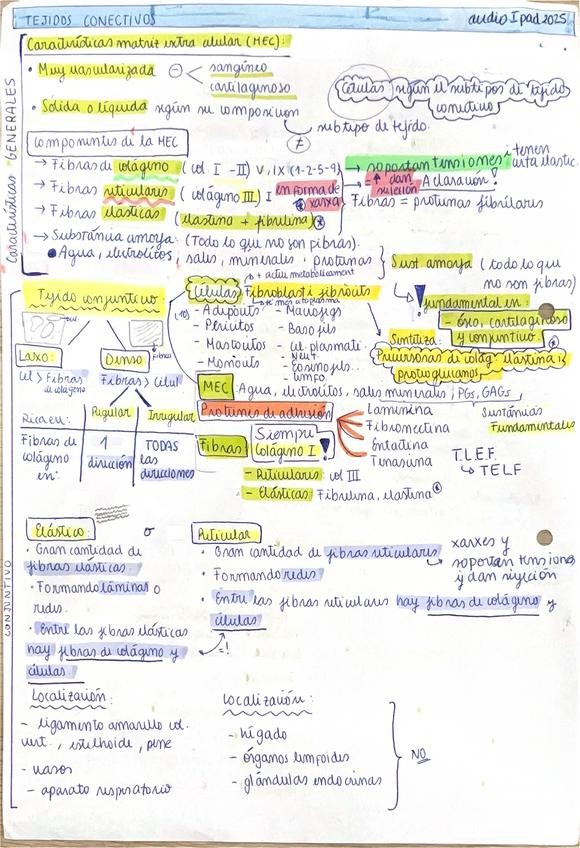 TEJIDOS CONECTIVOS
audio I pad 2025
Características matriz extra celular (MEC):
• Muy vascularizada ⊖ < sangíneo
cartilaginoso
• Sólida o líquida según su composición
subtipo de tejido.
Células según el subtipos de tejido
conectivo
Características GENERALES
Componentes de la MEC
→ Fibras de colágeno (col I - II) V, IX (1-2-5-9) → soportan tensiones
tienen
→ Fibras reticulares (colágeno III) I en forma de xarxa
dan sujeción Aclaración!
→ Fibras elásticas (elastina + fibrulina)
Fibras = proteinas fibrilares
→ Substáncia amorfa: (Todo lo que no son fibras).
• Agua, electrolitos, sales, minerales i proteinas
Sust. amorfa (todo lo que
no son fibras)
! fundamental en:
- óseo, cartilaginoso
y conjuntivo.
Tejido conjuntivo:
Células Fibroblasti i fibrocits
- Adipocits
- Pericitos
- Mastocitos
- Monocits
- Macrofags
- Basofils
- cel. plasmati.
- Neut.
- Eosinofils
- Limfo.
Sintitza:
Precursoras de colag elastina i
proteoglicanos
Laxo:
Cel > Fibras
de colágeno
Denso
Fibras > Celul
MEC: Agua, electrolitos, sales minerales, PGs, GAGs
Proteinas de adhesión
Laminina
Fibronectina
Entactina
Tenascina
Sustáncias
Fundamentales
T.L.E.F.
↳ TELF
Rica en:
Regular
Irregular
Fibras de
colágeno
en:
1
dirección
TODAS
las
direcciones
Fibras
Siempre
Colágeno I !
- Reticulares: col III
- Elásticas: Fibrulina, elastina
CONJUNTIVO
Elástico:
• Gran cantidad de
fibras elásticas.
• Formando láminas o
redes.
• Entre las fibras elásticas
hay fibras de colágeno y
células.
Reticular
• Gran cantidad de fibras reticulares
xarxes y
soportan tensiones
y dan sujeción
• Formando redes
• Entre las fibras reticulares hay fibras de colágeno y
células
=!
Localización:
- ligamento amarillo col.
vert., estilhoide, pene
- vasos
- aparato respiratorio
Localización:
- hígado
- órganos limfoides
- glándulas endocrinas
NO